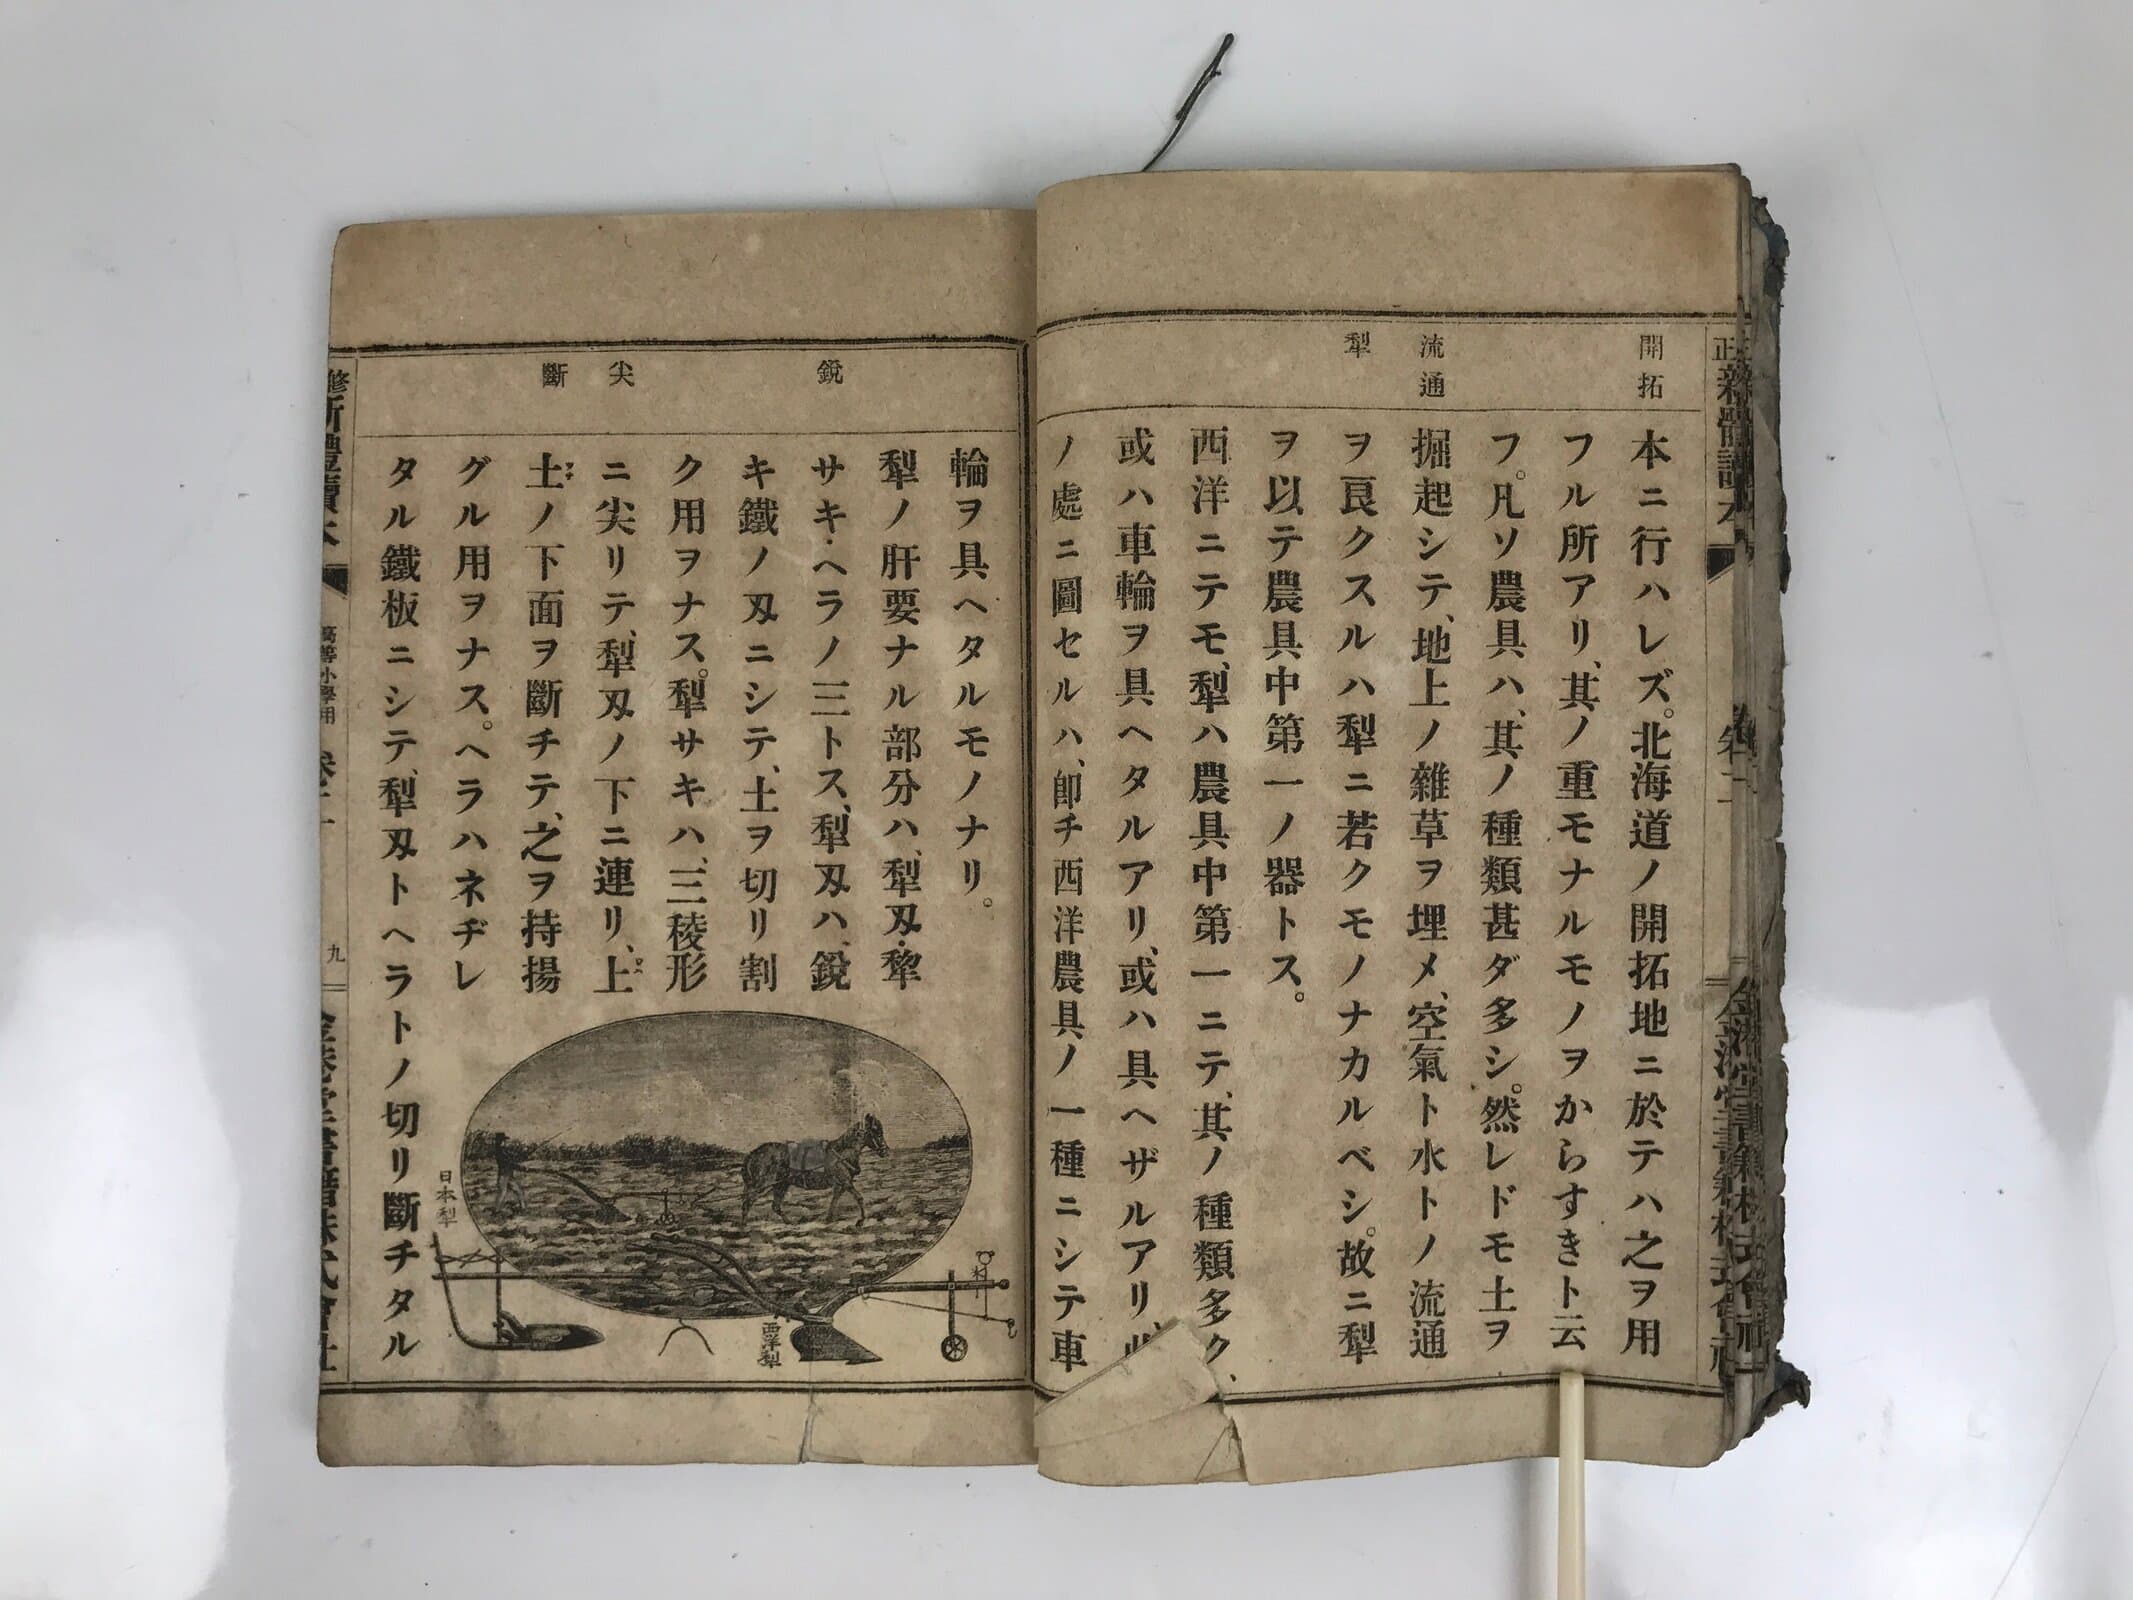 開拓
流通
犁
本ニ行ハレズ。北海道ノ開拓地ニ於テハ之ヲ用
フル所アリ、其ノ重モナルモノヲからすきト云
フ。凡ソ農具ハ、其ノ種類甚ダ多シ。然レドモ土ヲ
掘起シテ、地上ノ雜草ヲ埋メ、空氣ト水トノ流通
ヲ良クスルハ犁ニ若クモノナカルベシ。故ニ犁
ヲ以テ農具中第一ノ器トス。
西洋ニテモ、犁ハ農具中第一ニテ、其ノ種類多ク、
或ハ車輪ヲ具ヘタルアリ、或ハ具ヘザルアリ、
ノ處ニ圖セルハ、卽チ西洋農具ノ一種ニシテ車
鋭
尖
斷
輪ヲ具ヘタルモノナリ。
犁ノ肝要ナル部分ハ、犁刄・犂
サキ・ヘラノ三トス、犁刄ハ、鋭
キ鐵ノ刄ニシテ、土ヲ切リ割
ク用ヲナス。犁サキハ、三稜形
ニ尖リテ、犁刄ノ下ニ連リ、上
土ノ下面ヲ斷チテ、之ヲ持揚
グル用ヲナス。ヘラハネヂレ
タル鐵板ニシテ、犁刄トヘラトノ切リ斷チタル
日本犁
西洋犁
新體讀本
高等小學用
九
金港堂書籍株式會社